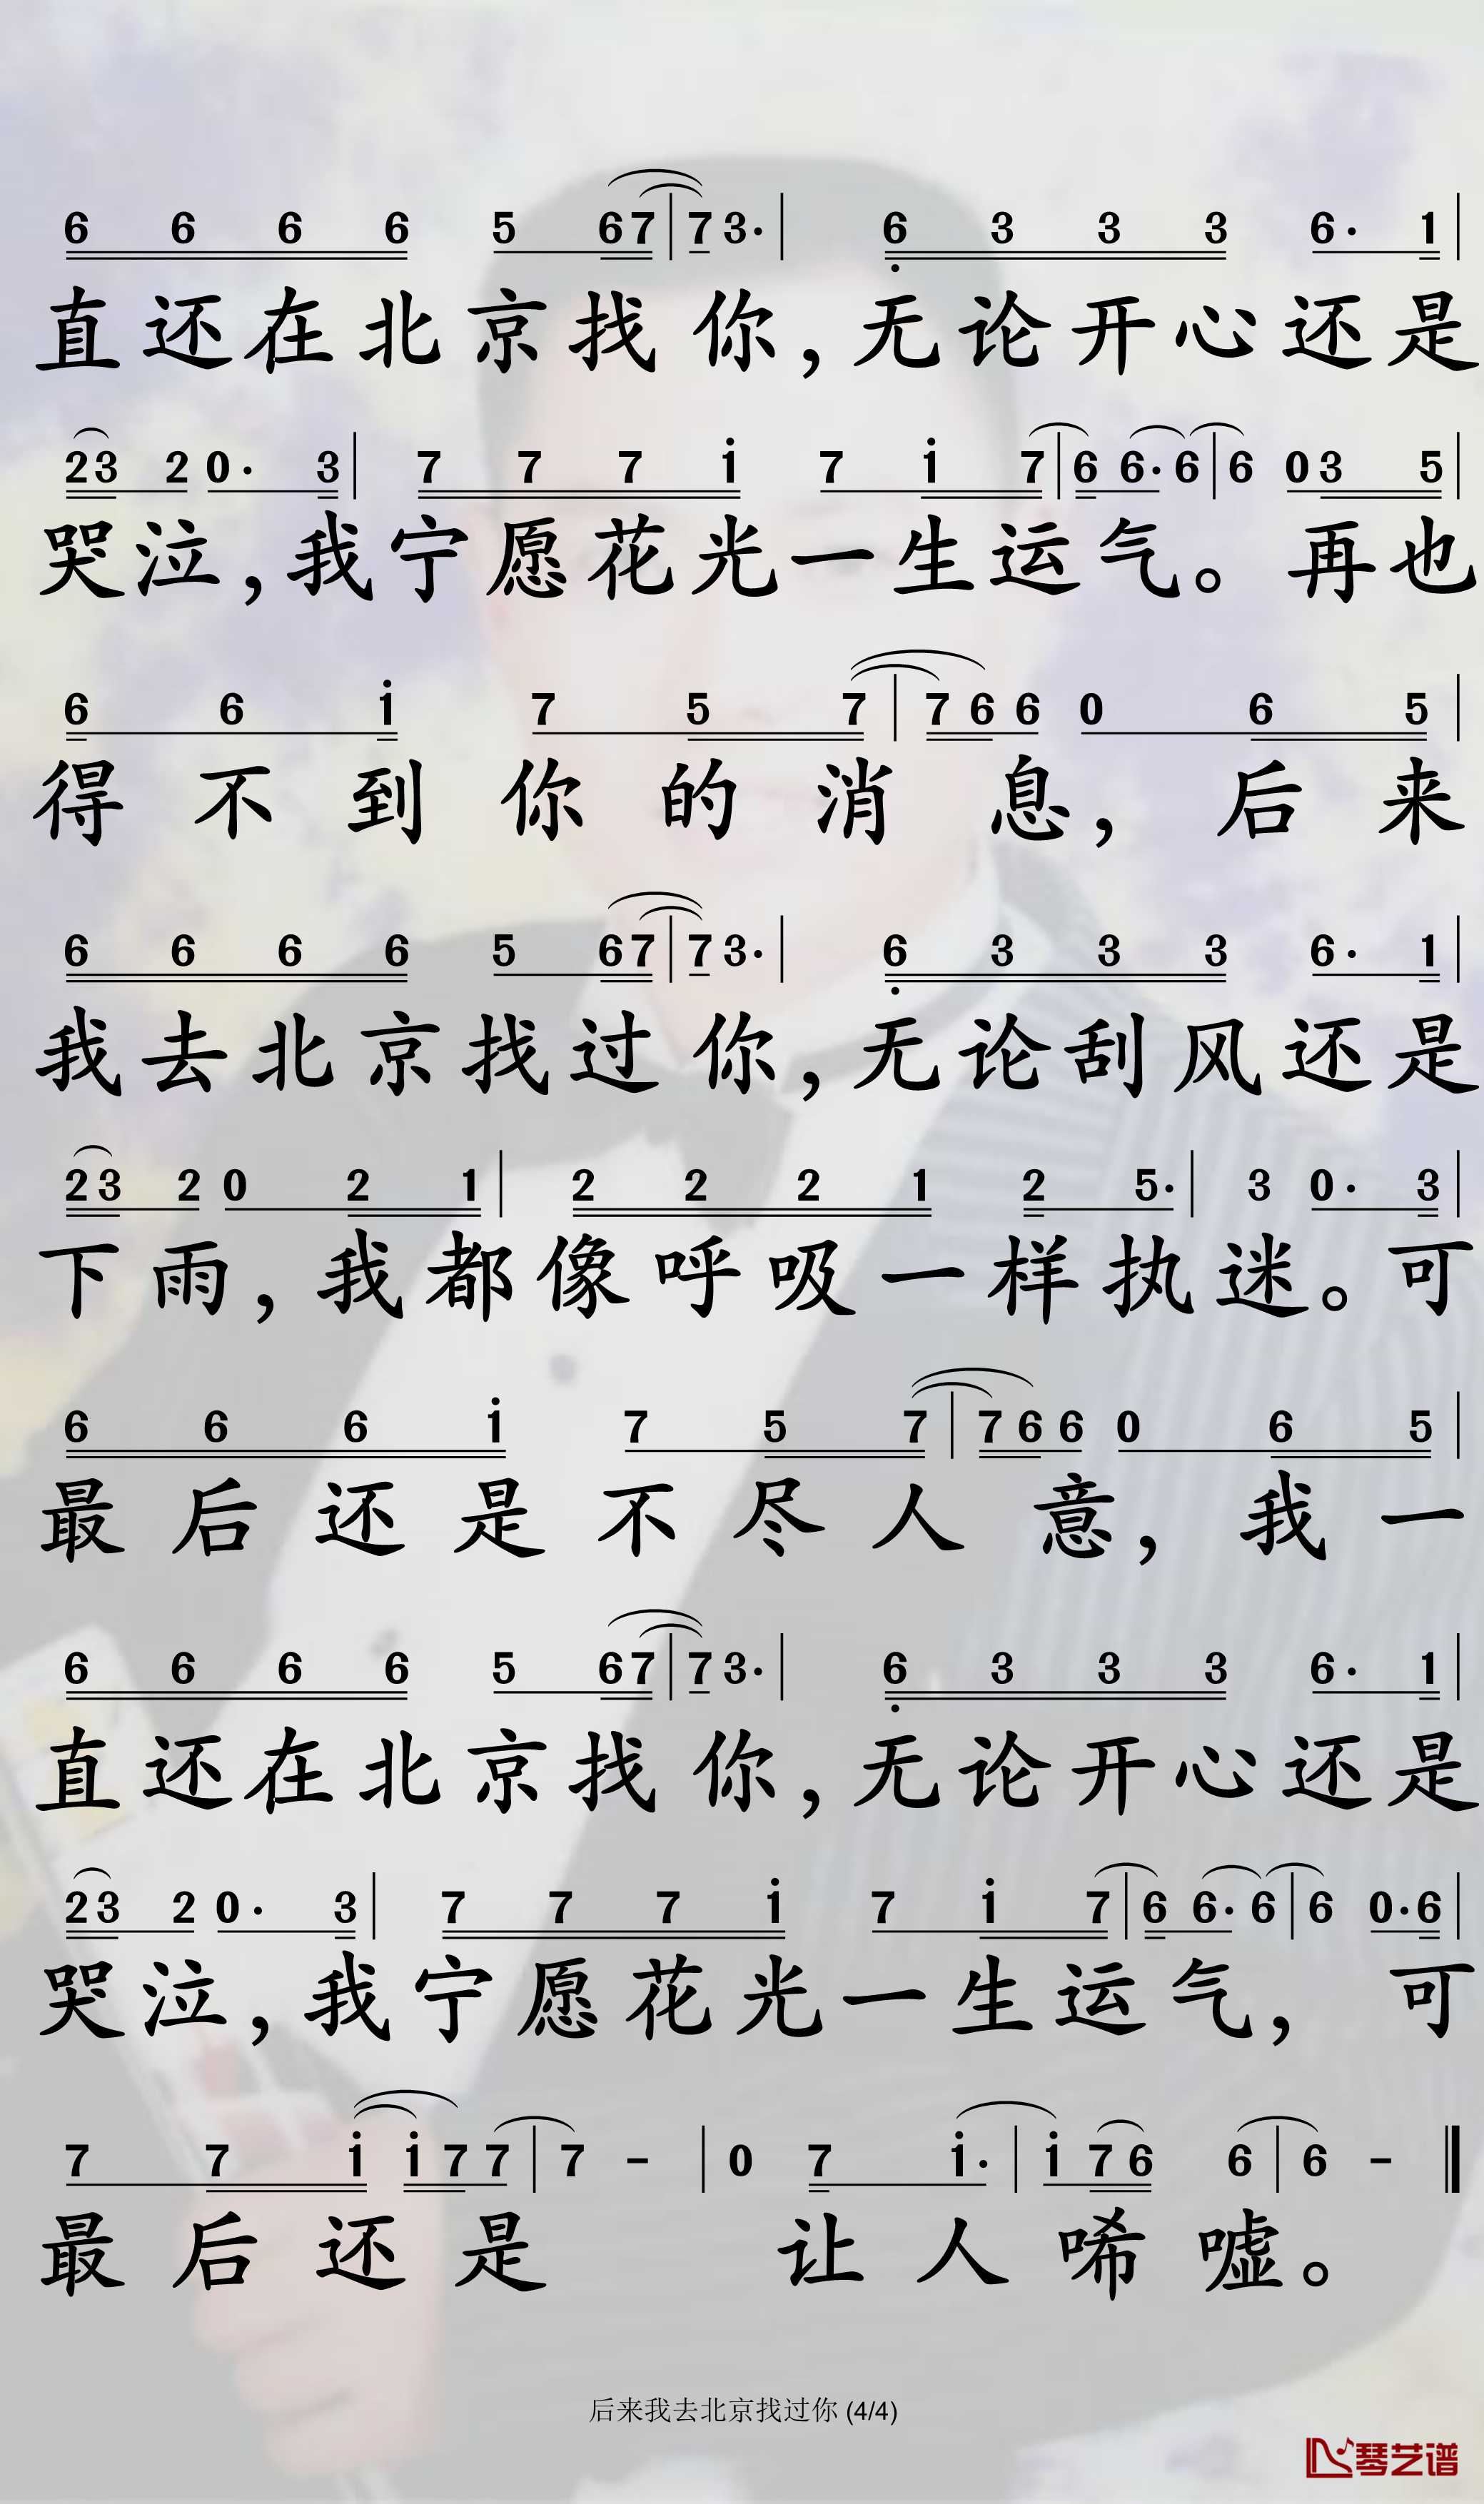 6 6 6 6 5 67|7 3·| 6̣ 3 3 3 6· 1|
直还在北京找你，无论开心还是
23 2 0· 3| 7 7 7 i 7 i 7|6 6·6|6 03 5|
哭泣，我宁愿花光一生运气。再也
6 6 i 7 5 7|7 6 6 0 6 5|
得不到你的消息，后来
6 6 6 6 5 67|7 3·| 6̣ 3 3 3 6· 1|
我去北京找过你，无论刮风还是
23 2 0 2 1| 2 2 2 1 2 5·| 3 0· 3|
下雨，我都像呼吸一样执迷。可
6 6 6 i 7 5 7|7 6 6 0 6 5|
最后还是不尽人意，我一
6 6 6 6 5 67|7 3·| 6̣ 3 3 3 6· 1|
直还在北京找你，无论开心还是
23 2 0· 3| 7 7 7 i 7 i 7|6 6·6|6 0·6|
哭泣，我宁愿花光一生运气，可
7 7 i i 7 7|7 -|0 7 i·|i 76 6|6 -‖
最后还是 让人唏嘘。
后来我去北京找过你 (4/4)
琴艺谱